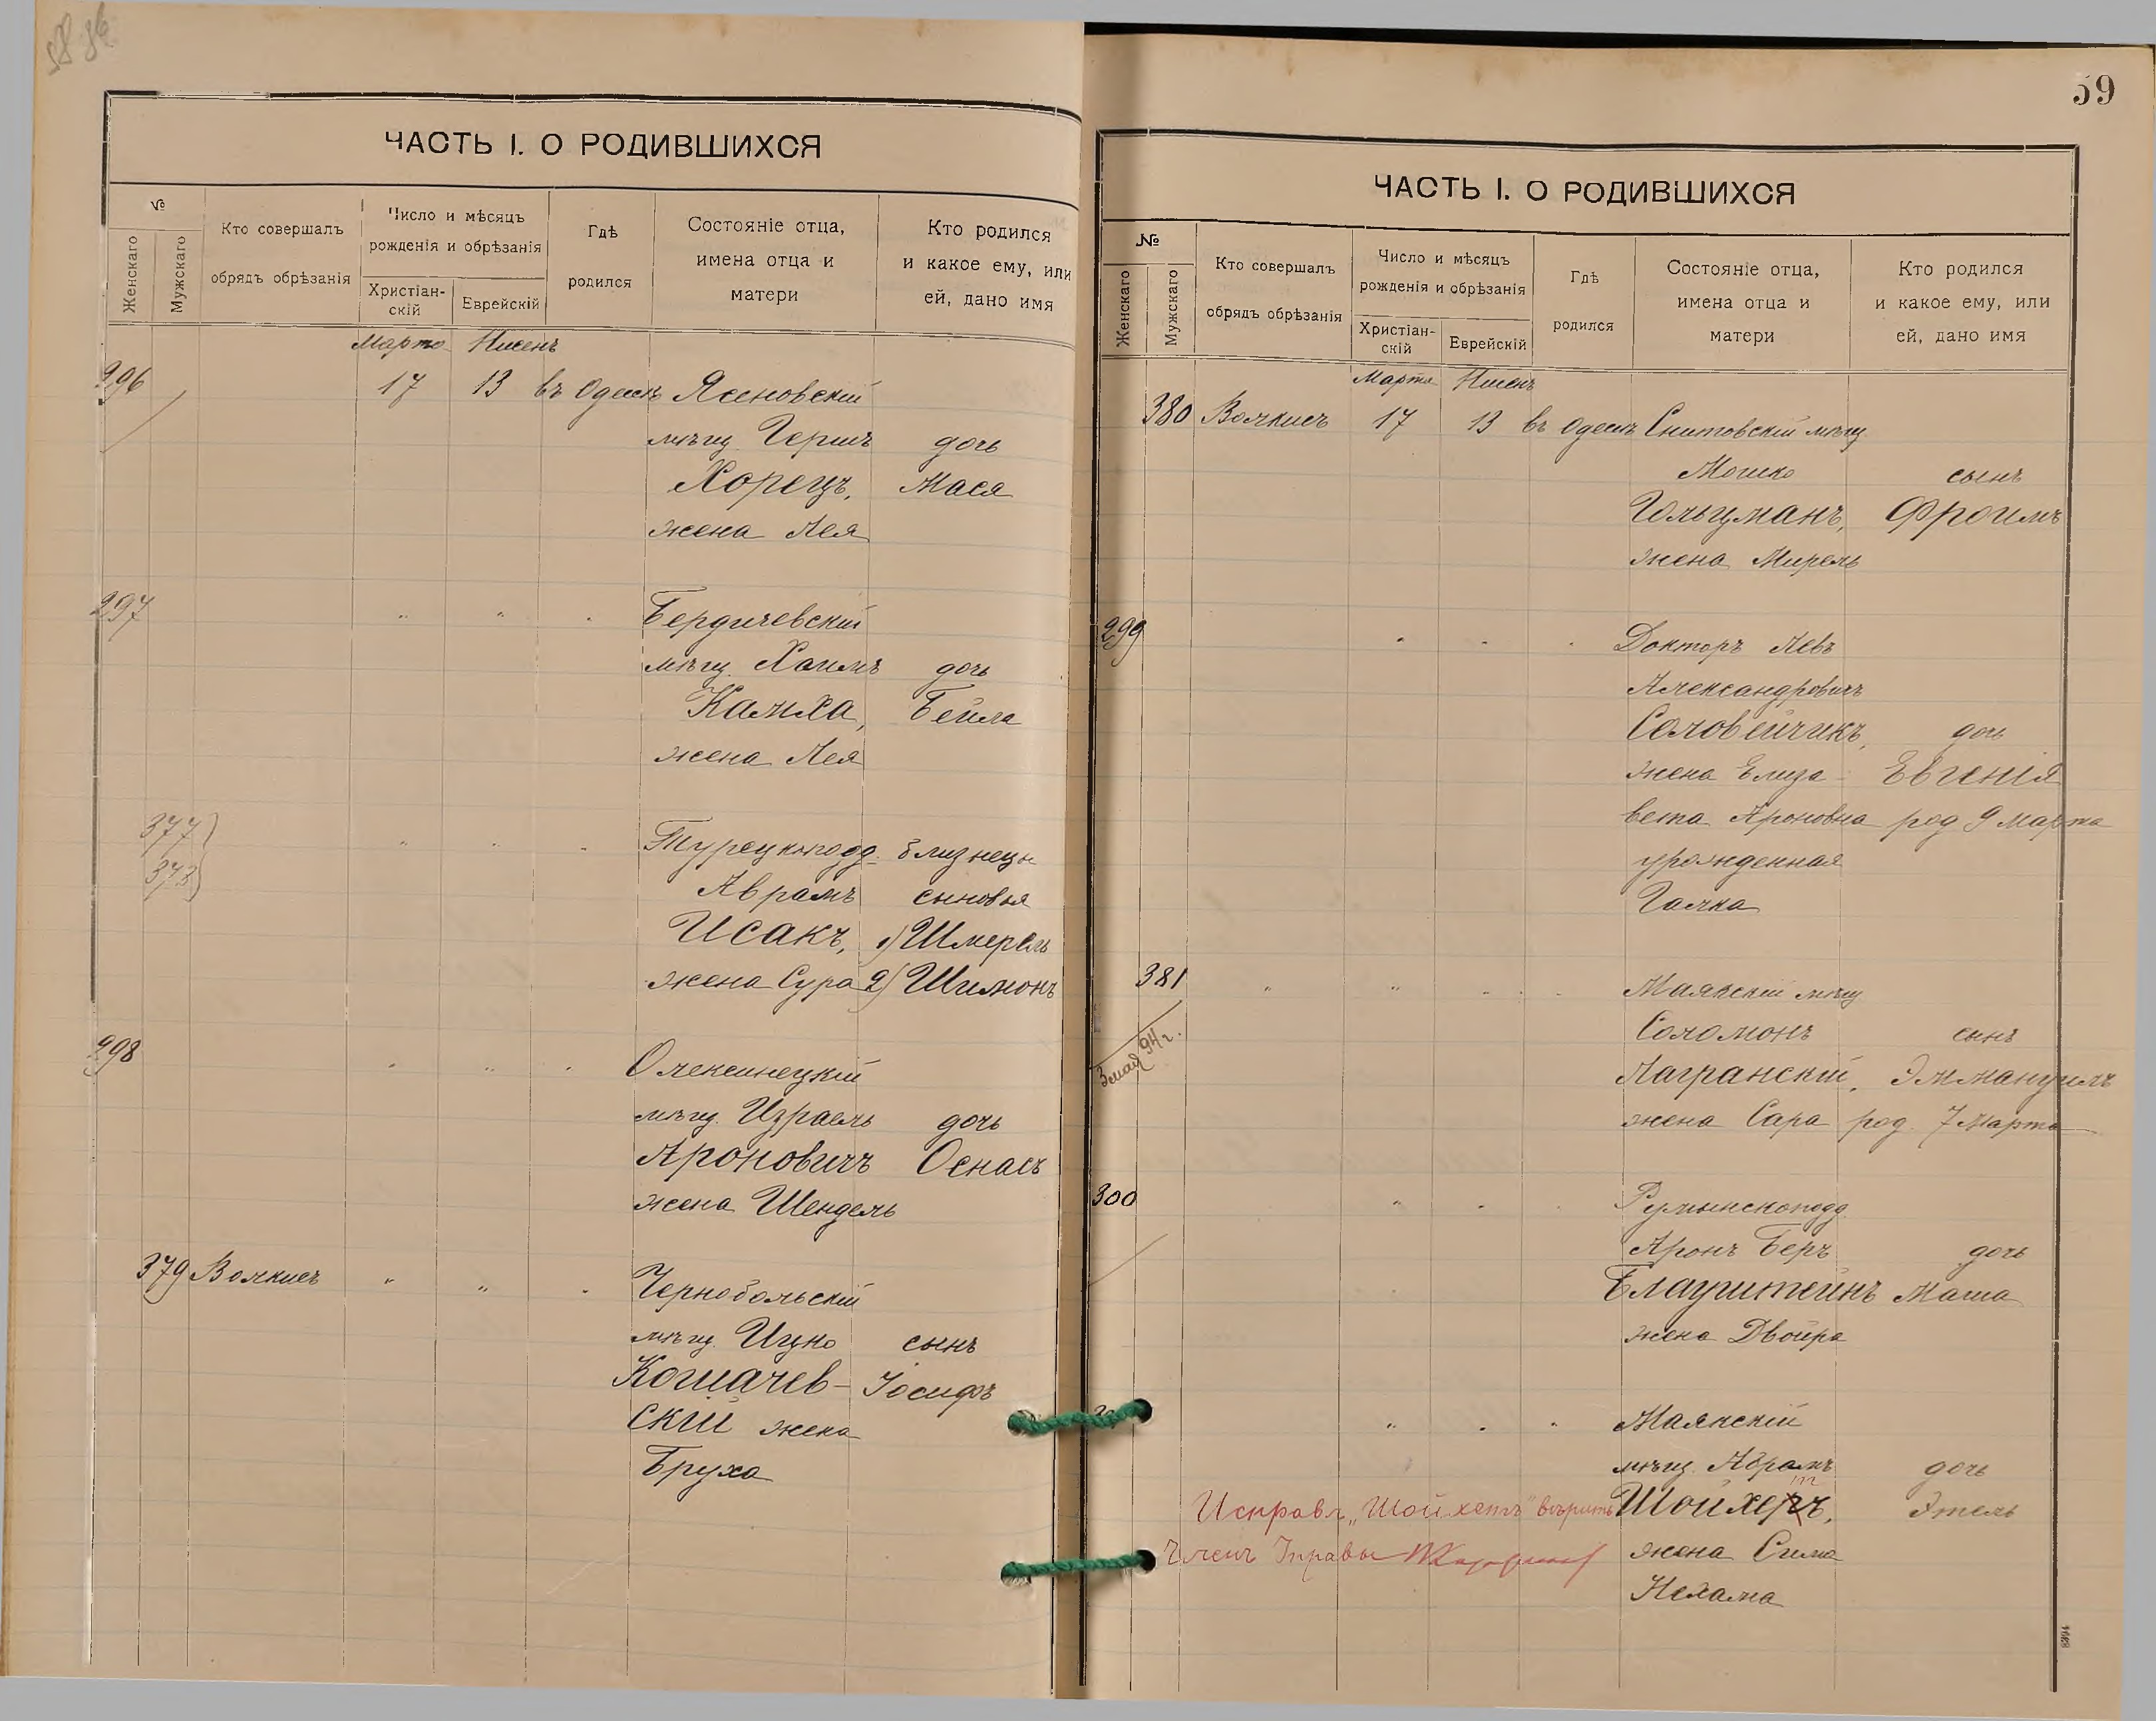 ЧАСТЬ I. О РОДИВШИХСЯ
№
Женскаго
Мужскаго
Кто совершалъ
обрядъ обрѣзанія
Число и мѣсяцъ
рожденія и обрѣзанія
Христіан-
скій
Еврейскій
Гдѣ
родился
Состояніе отца,
имена отца и
матери
Кто родился
и какое ему, или
ей, дано имя
Марта Нисенъ
296 17 13 въ Одессѣ Ясеновскій
мѣщ. Гершъ дочь
Хорецъ, Мася
жена Лея
297 " " " Бердичевскій
мѣщ. Хаимъ дочь
Камха, Бейла
жена Лея
377) " " " Турецкоподд. близнецы
378) Аврамъ сыновья
Исакъ, 1) Шмерель
жена Сура 2) Шимонъ
298 " " " Олексинецкій
мѣщ. Израель дочь
Ароновичъ Оснасъ
жена Шендель
379 Волкисъ " " " Чернобольскій
мѣщ. Ицко сынъ
Когначев- Іосифъ
скій жена
Бруха
59
ЧАСТЬ I. О РОДИВШИХСЯ
№
Женскаго
Мужскаго
Кто совершалъ
обрядъ обрѣзанія
Число и мѣсяцъ
рожденія и обрѣзанія
Христіан-
скій
Еврейскій
Гдѣ
родился
Состояніе отца,
имена отца и
матери
Кто родился
и какое ему, или
ей, дано имя
Марта Нисенъ
380 Волкисъ 17 13 въ Одессѣ Снитовскій мѣщ.
Мошко сынъ
Гольцманъ, Фроимъ
жена Мирель
299 " " " Докторъ Левъ
Александровичъ
Соловейчикъ, дочь
жена Елиза- Евгенія
вета Ароновна род 9 Марта
урожденная
Галка
381 " " " " Маякскій мѣщ
Соломонъ сынъ
3 мая 94 г.
Лагранскій, Эммануилъ
жена Сара род. 7 Марта
300 " " " Румынскоподд.
Аронъ Беръ дочь
Блауштейнъ Маша
жена Двойра
" " " Маякскій
мѣщ. Абрамъ дочь
Исправл „Шойхетъ" вѣрить Шойхеръ, Этель
Членъ Управы жена Сима
Нехама